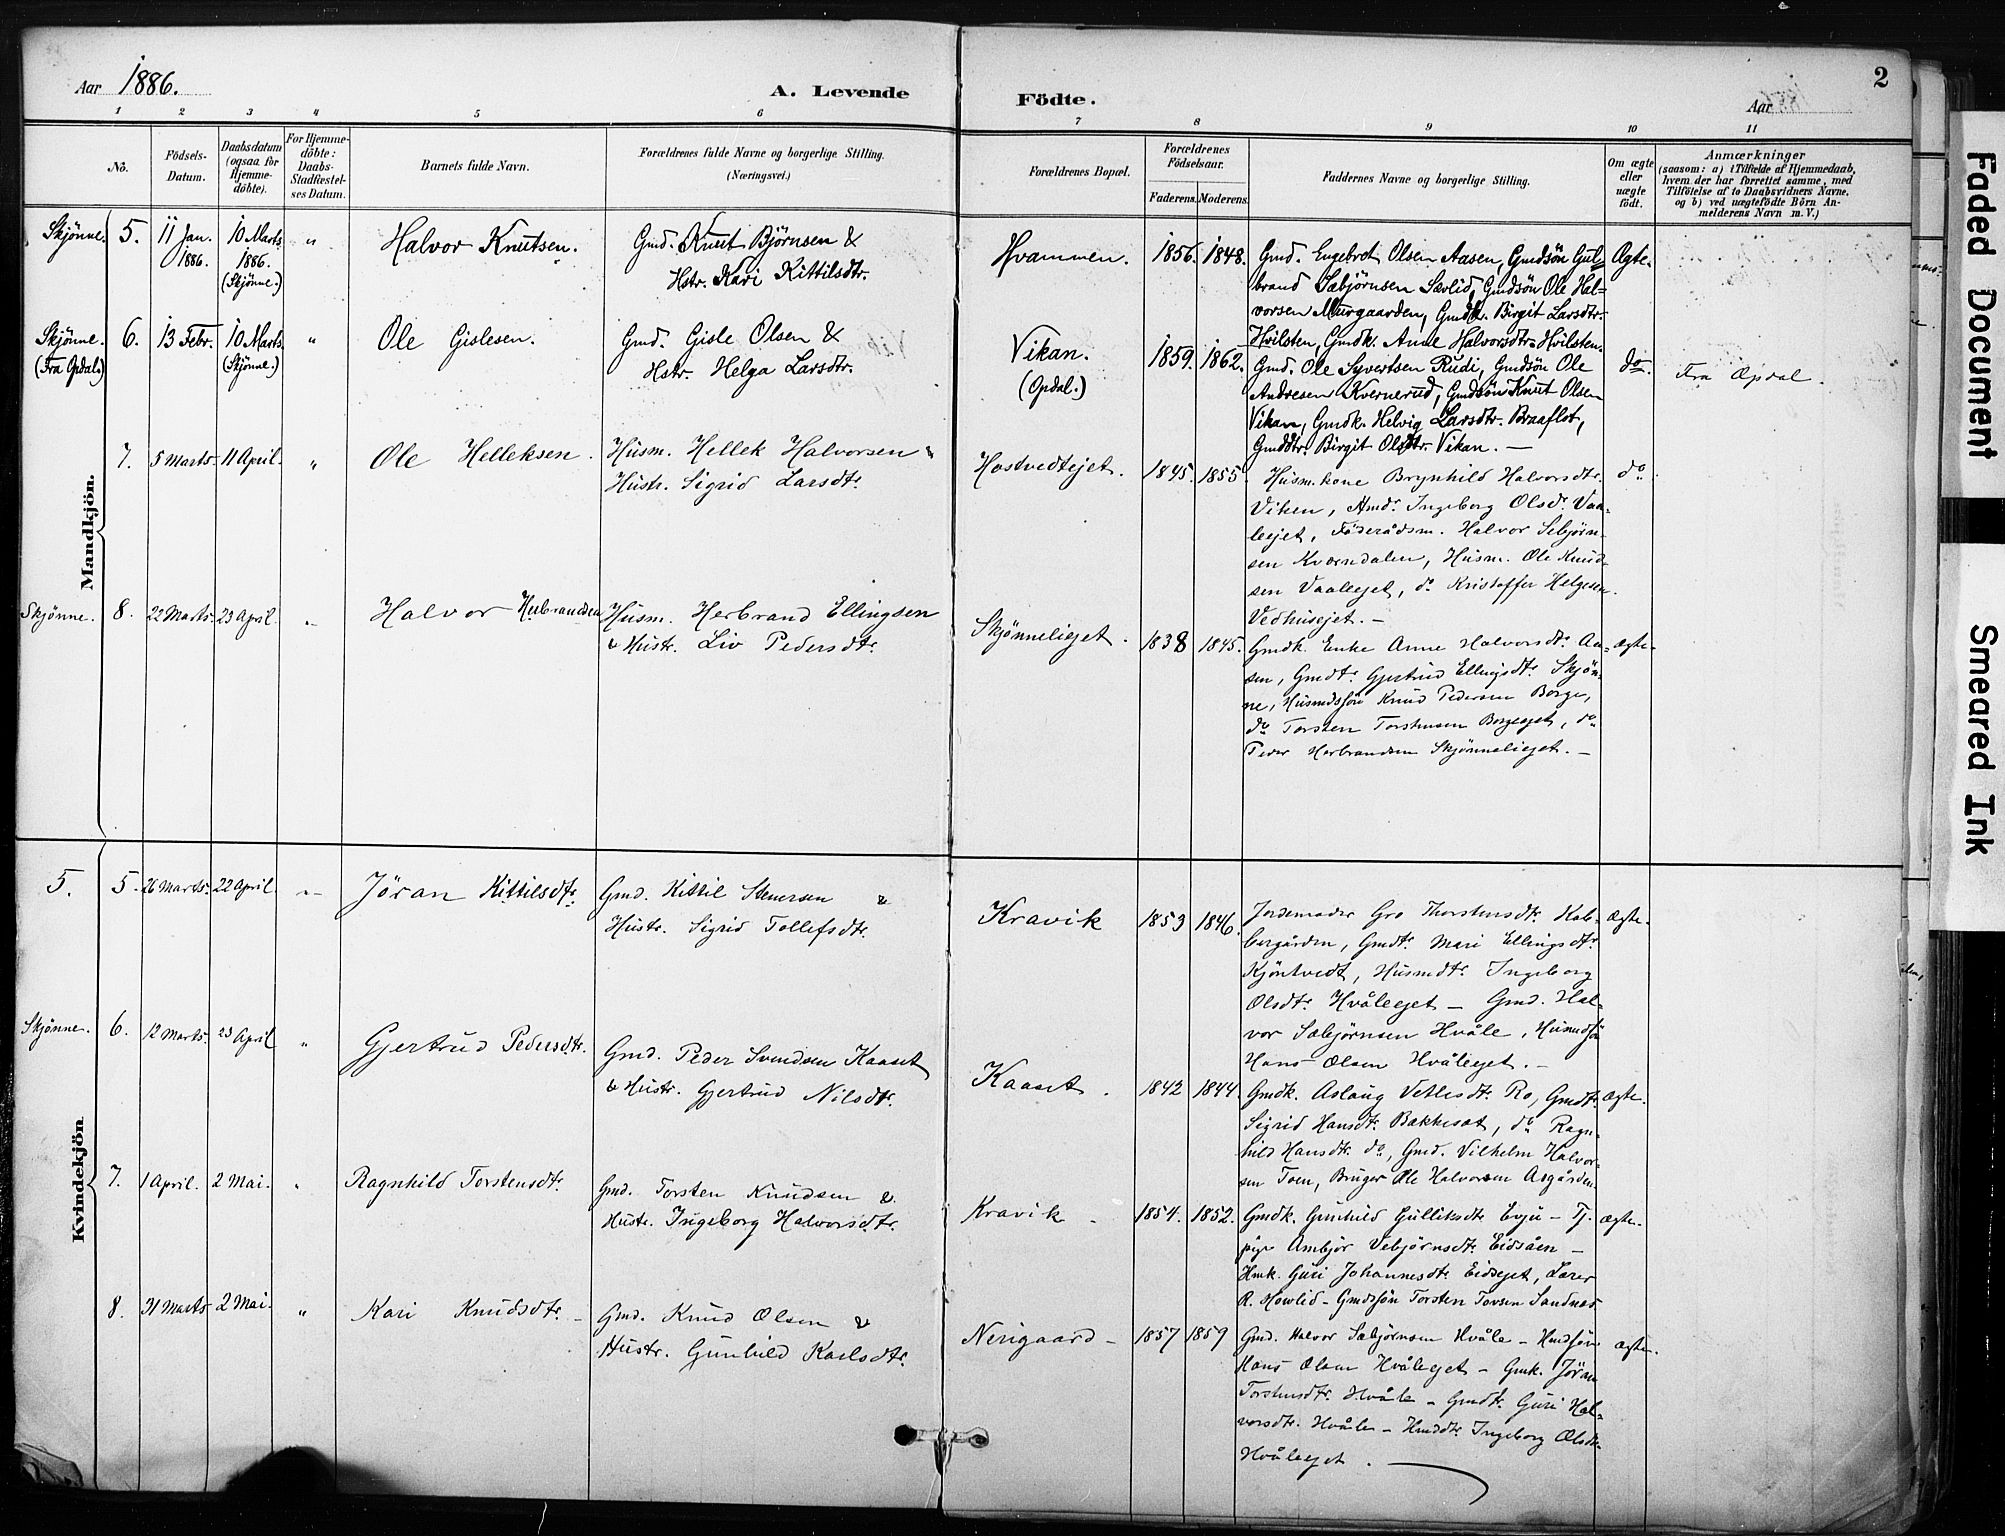 Aar 1886.
A. Levende
Födte.
Aar
2
1 2 3 4 5 6 7 8 9 10 11
No.
Födsels-
Datum.
Daabsdatum
(ogsaa for
Hjemme-
döbte).
For Hjemme-
döbte:
Daabs-
Stadfæstel-
ses Datum.
Barnets fulde Navn.
Forældrenes fulde Navne og borgerlige Stilling.
(Næringsvei.)
Forældrenes Bopæl.
Forældrenes
Födselsaar.
Faderens. Moderens.
Faddernes Navne og borgerlige Stilling.
Om ægte
eller
uægte
födt.
Anmærkninger
(saasom: a) i Tilfælde af Hjemmedaab,
hvem der har forrettet samme, med
Tilföielse af to Daabsvidners Navne,
og b) ved uægtefödte Börn An-
melderens Navn m. V.)
Mandkjön.
Skjønne. 5. 11 Jan. 1886. 10 Marts 1886. (Skjønne.) " Halvor Knutsen.
Gmd. Knut Björnsen &
Hstr. Kari Kittilsdtr.
Hvammen. 1856. 1848.
Gmd. Engebrot Olsen Aasen, Gmdsön Gul=
brand Sæbjörnsen Sævlid, Gmdsön Ole Hal=
vorsen Murgaarden, Gmdk. Birgit Larsdtr.
Hvilsten, Gmdk. Anne Halvorsdtr. Hvilsten.
Ægte.
Skjønne. (Fra Opdal.) 6. 13 Febr. 10 Marts. (Skjønne.) " Ole Gislesen.
Gmd. Gisle Olsen &
Hstr. Helga Larsdtr.
Vikan.
(Opdal.)
1859. 1862.
Gmd. Ole Syvertsen Rudi, Gmdsön Ole
Andresen Kvernerud, Gmdsön Knut Olsen
Vikan, Gmdk. Helvig Larsdtr. Braaflot,
Gmddtr. Birgit Olsdtr. Vikan. —
do.
Fra Opdal.
7. 5 Marts. 11 April. " Ole Helleksen.
Husm. Hellek Halvorsen "
Hustr. Sigrid Larsdtr.
Hostvedtejet. 1845. 1855.
Husm.kone Brynhild Halvorsdtr.
Viken, Ingeborg Olsdr. Vaa-
leejet, Föderådsm. Halvor Sebjörn-
sen Kværndalen, Husm. Ole Knud-
sen Vaaleejet, do. Kristoffer Helgesen
Vedhusejet. —
do
Skjønne. 8. 22 Marts. 23 April. " Halvor Herbrandsen
Husm. Herbrand Ellingsen
& Hustr. Liv Pedersdtr.
Skjønneliejet. 1838 1845.
Gmdk. Enke Anne Halvorsdtr. Aa-
sen, Gmdtr. Gjertrud Ellingsdtr. Skjön-
ne, Husmdsön Knud Pedersen Borge,
do Torsten Torstensen Borgeejet, do
Peder Herbrandsen Skjønneliejet. —
ægte.
Kvindekjön.
5. 5. 26 Marts. 22 April. " Jöran Kittilsdtr.
Gmd. Kittil Stenersen &
Hustr. Sigrid Tollefsdtr.
Kravik 1853 1846.
Jordemoder Gro Thorstensdtr. Kob-
bergården, Gmdtr. Mari Ellingsdtr.
Kjöntvedt, Husmdtr. Ingeborg
Olsdtr. Hvåleejet — Gmd. Hal-
vor Sæbjörnsen Hvåle, Husmdsön
Hans Olsen Hvåleejet. —
ægte.
Skjønne. 6. 12 Marts. 23 April " Gjertrud Pedersdtr.
Gmd. Peder Svendsen Kaaset
& Hustr. Gjertrud Nilsdtr.
Kaaset. 1842 1844.
Gmdk. Aslaug Vetlesdtr. Ro, Gmdtr.
Sigrid Hansdtr. Bakkesæt, do Ragn-
hild Hansdtr. do, Gmd. Vilhelm Halvor-
sen Toen, Bruger Ole Halvorsen Asgården
ægte.
7. 1 April. 2 Mai. " Ragnhild Torstensdtr.
Gmd. Torsten Knudsen &
Hustr. Ingeborg Halvorsdtr.
Kravik — 1854. 1852.
Gmdk. Gunhild Gulliksdtr Evju — Tj.
pige Ambjör Vebjörnsdtr. Eidsåen —
Hmk. Guri Johannesdtr. Eidsejet, Lærer
R. Howlid — Gmdsön Torsten Torsen Sandnes
ægte.
8. 31 Marts 2 Mai. " Kari Knudsdtr. —
Gmd. Knud Olsen &
Hustr. Gunhild Karlsdtr.
Nerigaard — 1857 1859
Gmd. Halvor Sæbjörnsen Hvåle — Hmdsön
Hans Olsen Hvåleejet — Gmk. Jöran
Torstensdtr. Hvåle — Gmdtr. Guri Hal-
vorsdtr. Hvåle — Hmddtr. Ingeborg Olsdtr.
Hvåleejet. —
ægte.
Faded Document
Smeared Ink